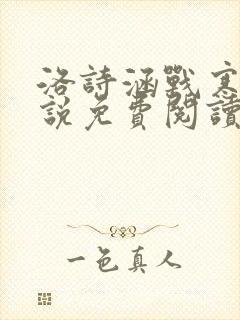 洛詩涵戰寒
說免費閱讀
一色真人